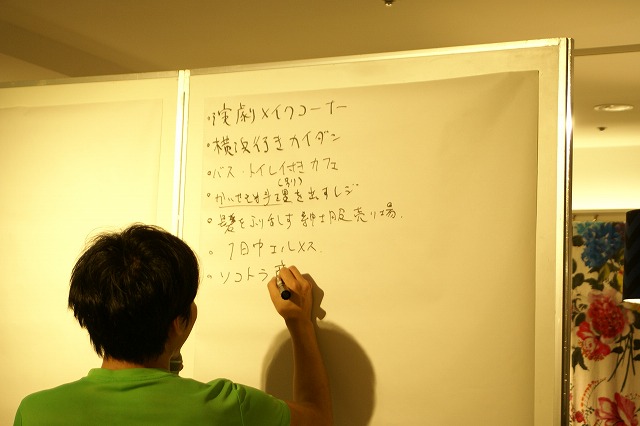 ・演劇メイクコーナー
・横浜行きカイダン
・バス・トイレ付きカフェ
(釣り)
を出すレジ
・髪をふり乱す紳士服売り場.
・1日中エルメス
・ソコトラ